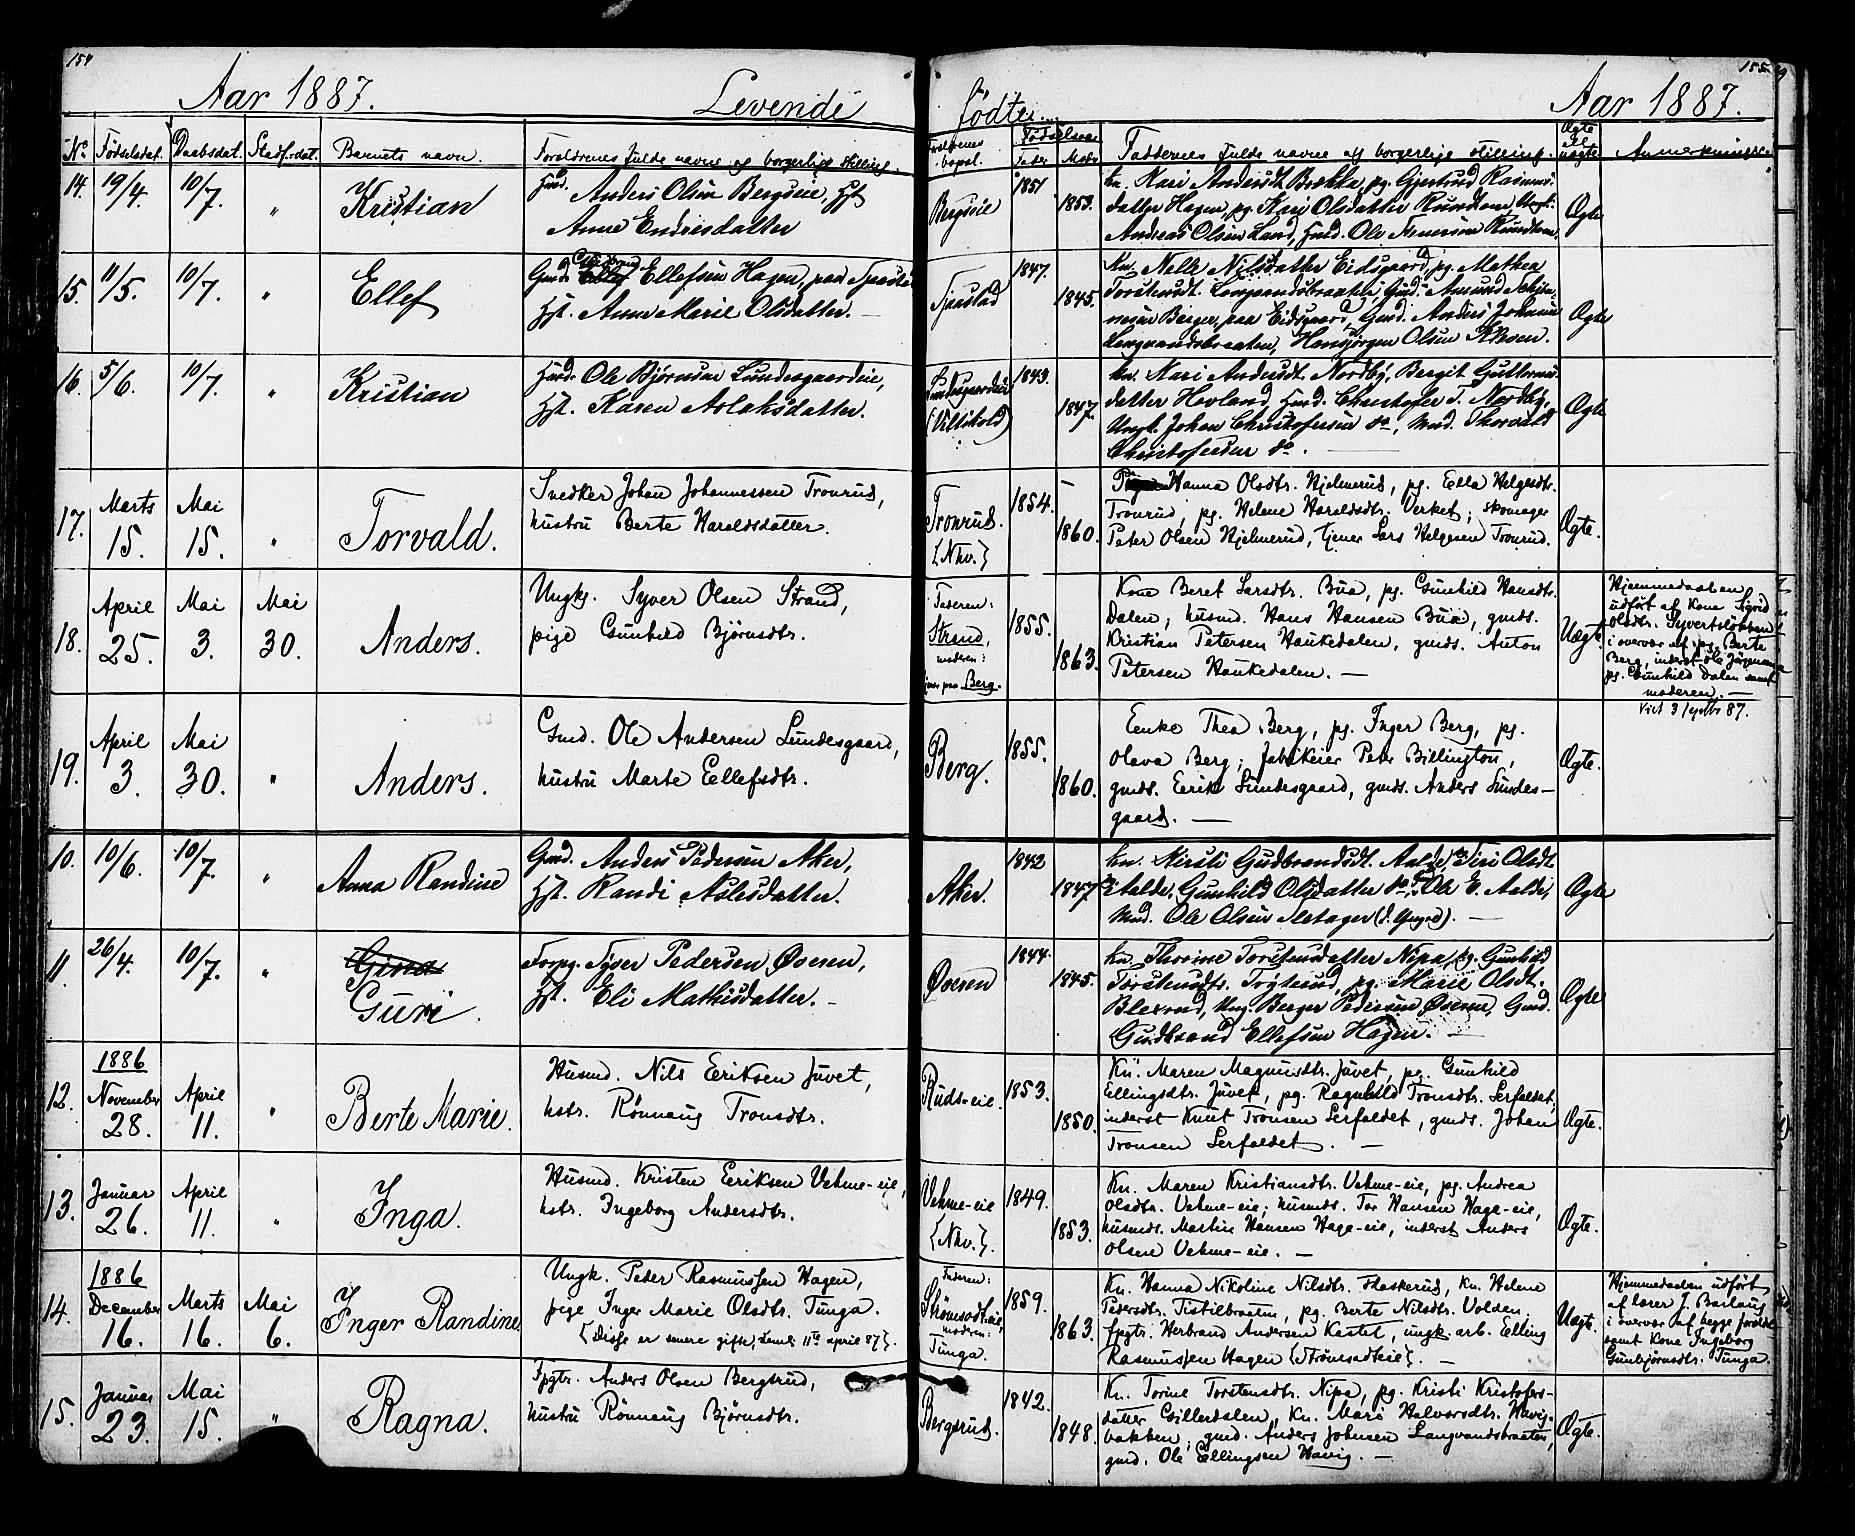 154
Aar 1887. Levende
No. Fødselsdat. Daabsdat. Stadf.-dat. Barnets navn. Forældrenes fulde navne og borgerlige stilling.
14. 19/4. 10/7. " Kristian
Husd. Anders Olsen Bergseie, Hst.
Anne Endresdatter
15. 11/5. 10/7. " Ellef
Gmd. Ellefsen Hagen, paa
Hst. Anne Marie Olsdatter. —
16. 5/6. 10/7. " Kristian
Husd. Ole Bjørnsen Lundesgaardeie,
Hst. Karen Aslaksdatter.
17. Marts 15. Mai 15. " Torvald.
Snedker Johan Johannessen Tronrud,
hustru Berte Haraldsdatter.
18. April 25. Mai 3. Mai 30. Anders.
Ungk. Syver Olsen Strand,
pige Gunhild Bjørnsdtr.
19. April 3. Mai 30. " Anders.
Gmd. Ole Andersen Lundesgaard,
hustru Marte Eellefsdtr.
10. 10/6. 10/7. " Anna Randine
Gmd. Anders Pedersen Aker,
Hst. Randi Aslesdatter.
11. 26/4. 10/7. " Gina
Guri.
Forpg. Syver Pedersen Øveren,
Hst. Eli Mathisdatter. —
12. 1886 November 28. April 11. " Berte Marie.
Husmd. Nils Eeriksen Juvet,
hstr. Rønnaug Tronsdtr.
13. Januar 26. April 11. " Inga.
Husmd. Kristen Eeriksen Vekme-eie,
hstr. Ingeborg Andersdtr.
14. 1886 December 16. Marts 16. Mai 6. Inger Randine
Ungk. Peder Rasmussen Hagen,
pige Inger Marie Olsdtr. Tunga.
{Disse er senere gifte, 11te april 87}.
15. Januar 23. Mai 15. " Ragna.
Fpgtr. Anders Olsen Bergsrud,
hustru Rønnaug Bjørnsdtr.
155
fødte. Aar 1887.
Forældrenes bopæl. Fødselsaar Fader Moder Faddernes fulde navne og borgerlige stilling. Ægte el. uægte Anmerkninger.
Bergseie 1851 1853. Ægte
Kn. Kari Andersdt. Brækka, pg. Gjertrud
datter Hagen, pg. Kari Olsdatter Rundtom, Ungk.
Andreas Olsen Land, Husd. Ole Rundtom.
1847. 1845. Ægte
Kn. Nelle Nilsdatter Eidsgaard, pg. Mathea
Torstensdt. Langvandsbraaten, Gmd. Amund
Berger, paa Eidsgaard, Gmd. Anders Johnsen
Langvandsbraaten, Hansjørgen Olsen
Lundesgaardeie 1843. 1847. Ægte
Kn. Kari Andersdt. Nordby, Bergit Guttorms-
datter Hovland, Husd. Christofer T. Nordby,
Ungk. Johan Christofersen do, Umd. Thorvald
Christofersen do. —
Tronrud. {Nkv.} 1854. 1860. Ægte.
Hanna Olsdtr. Hjelmerud, pg. Ella Helgesdtr.
Tronrud, pg. Helene Haraldsdtr. Verket; skomager
Peter Olsen Hjelmerud, tjener Lars Helgesen Tronrud.
Faderen: Strand, moderen: tjener paa Berg. 1855. 1863. Uægte.
Kone Beret Larsdtr. Bua, pg. Gunhild Hansdtr.
Dalen; husmd. Hans Hansen Bua, gmds.
Kristian Petersen Haukedalen, gmds. Anton
Petersen Haukedalen. —
Hjemmedaaben
udført af Kone Sigrid
Olsdtr. Syvertsløkken
i overvær af pg. Berte
Berg, inderst Ole Jørgensen,
pg. Gunhild Dalen samt
moderen. —
87.
Berg. 1855. 1860. Ægte.
Eenke Thea Berg, pg. Inger Berg, pg.
Olava Berg; fabrikeier Peter Billington,
gmds. Eerik Lundesgaard, gmds. Anders Lundes-
gaard. —
Aker. 1842 1847 Ægte
Kn. Kirsti Gudbrandsdt. Aalde, Siri Olsdt.
Aalde, Gunhild Olsdatter do, Ole E. Aalde,
Umd. Ole Olsen —
Øveren 1844. 1845. Ægte
Kn. Thorine Torstensdatter Nipa, pg. Gunhild
Torstensdtr. pg. Marie Olsdt.
Ung. Berger Pedersen Øveren, Gmd.
Gudbrand Ellefsen Hagen. —
Ruds-eie. 1853. 1850. Ægte.
Kn. Maren Magnusdtr. Juvet, pg. Gunhild
Ellingsdtr. Juvet, pg. Ragnhild Tronsdtr. Serfaldet,
inderst Knut Tronsen Serfaldet, gmds. Johan
Tronsen Serfaldet. —
Vekme-eie {Nkv.}. 1849. 1853. Ægte.
Kn. Maren Kristiansdtr. Vekme-eie, pg. Andrea
Olsdtr. Vekme-eie; husmds. Tor Hansen Haga-eie,
husmds. Martin Hansen Haga-eie, inderst Anders
Olsen Vekme-eie. —
Faderen: Strømsodteie, moderen: Tunga. 1859. 1863. Uægt.
Kn. Hanna Nikoline Nilsdtr. Flaskerud, Kn. Helene
Pedersdtr. Tistilbraaten, pg. Berte Nilsdtr. Volden,
fpgtr. Herbrand Andersen Kastet, ungk. arb. Elling
Rasmussen Hagen {Strømsodteie}. —
Hjemmedaaben udført
af lærer J. Barlaug
i overvær af begge forældre
samt Kone Ingeborg
Gunbjørnsdtr. Tunga.
Bergsrud. 1842. 1848. Ægte.
Kn. Torine Torstensdtr. Nipa, pg. Kristi Kristofers-
datter Gillerdalen, Kn. Mari Halvorsdtr. Havig-
bakken, gmd. Anders Johnsen Langvandsbraaten,
gmd. Ole Ellingsen Havig. —